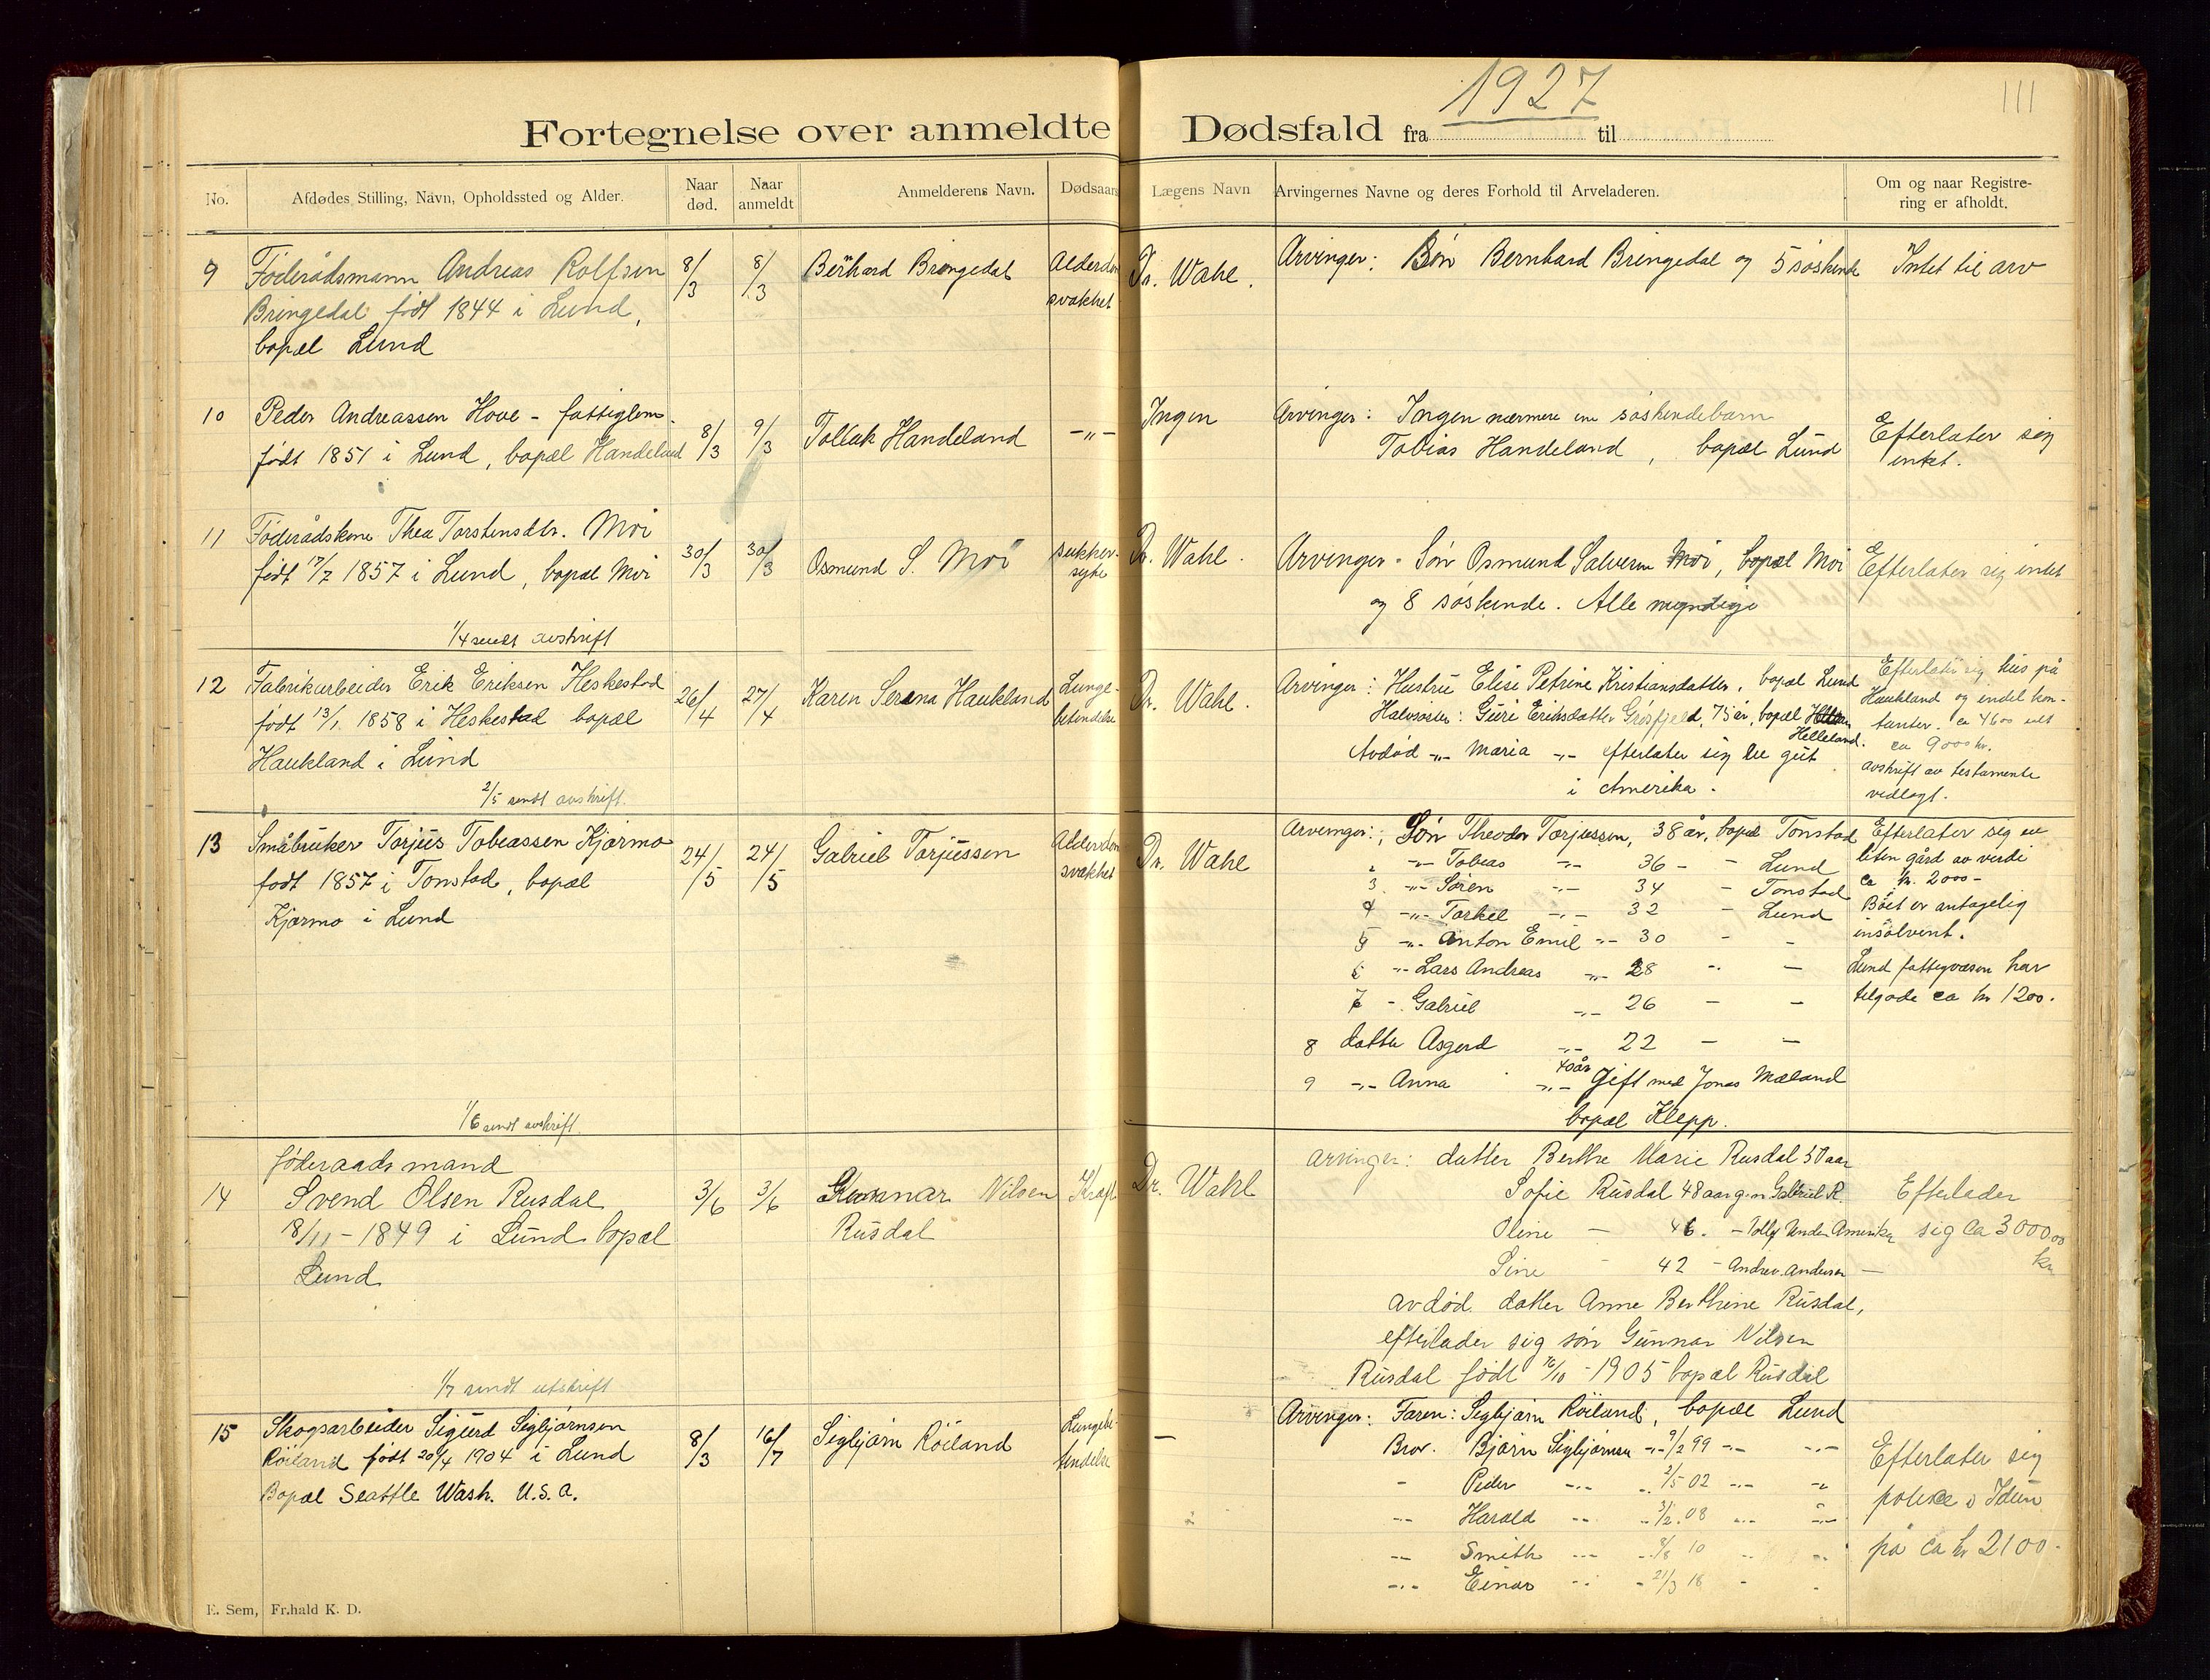 1927
111
Fortegnelse over anmeldte Dødsfald fra til
No. Afdødes Stilling, Navn, Opholdssted og Alder. Naar død. Naar anmeldt Anmelderens Navn. Dødsaars Lægens Navn Arvingernes Navne og deres Forhold til Arveladeren. Om og naar Registrering er afholdt.
9 Føderådsmann Andreas Rolfsen 8/3 8/3 Bernhard Bringedal Alderdom Dr. Wahl. Arvinger: Søn Bernhard Bringedal og 5 søskende Intet til arv
Bringedal født 1844 i Lund, svakhet
bopæl Lund
10 Peder Andreassen Hove - fattiglem. 8/3 9/3 Tollak Handeland -"- Ingen Arvinger: Ingen nærmere enn søskendebarn Efterlater sig
født 1851 i Lund, bopæl Handeland Tobias Handeland, bopæl Lund intet.
11 Føderådskone Thea Torstensdtr. Moi 30/3 30/3 Osmund S. Moi sukker- Dr. Wahl. Arvinger - Søn Osmund Salvesen Moi, bopæl Moi Efterlater sig intet
født 17/7 1857 i Lund, bopæl Moi syke og 8 søskende. Alle myndige
1/4 sendt avskrift
12 Fabrikarbeider Erik Eriksen Heskestad 26/4 27/4 Karen Serena Haukland Lunge- Dr. Wahl. Arvinger: Hustru Elise Petrine Kristiansdatter, bopæl Lund Efterlater sig hus på
født 13/1 1858 i Heskestad bopæl betendelse Halvsøster: Guri Eriksdatter Grøsfjeld, 75 år, bopæl Helleland. Haukland og endel kon-
Haukland i Lund Avdød -"- Maria -"- efterlater sig gut tanter. ca 4600 alt
i Amerika. ca 9000 kr.
2/5 sendt avskrift. avskrift av testamente
vedlagt.
13 Småbruker Torjus Tobiassen Kjørmo 24/5 24/5 Gabriel Torjussen Alderdom Dr. Wahl Arvinger: Søn Theodor Torjussen, 38 år, bopæl Tonstad Efterlater sig en
født 1857 i Tonstad, bopæl svakhet 2 -"- Tobias -"- 36 - - Lund liten gård av verdi
Kjørmo i Lund 3 -"- Søren -"- 34 - Tonstad ca kr. 2000-
4 -"- Torkel -"- 32 - Lund Boet er antagelig
5 -"- Anton Emil -"- 30 - - insolvent.
6 -"- Lars Andreas -"- 28 - - Lund fattigvæsen har
7 - Gabriel -"- 26 - - tilgode ca kr 1200.
8 datter Asgerd -"- 22 - -
9 -"- Anna -"- 40 år Gift med Jonas Mæland
bopæl Klepp.
1/6 sendt avskrift.
føderaadsmand Arvinger: datter Berthe Marie Rusdal 50 aar
14 Svend Olsen Rusdal 3/6 3/6 Gunnar Nilsen Kræft Dr. Wahl Sofie Rusdal 48 aar g.m Gabriel R. Efterlader
18/11 - 1849 i Lund bopæl Rusdal Oline - 46. - Amerika sig ca 3000,00
Lund Sine - 42 - Andrev. Andersen - kr
avdød datter Anne Berthine Rusdal,
efterlader sig søn Gunnar Nilsen
Rusdal født 16/10 - 1905 bopæl Rusdal
1/7 sendt utskrift
15 Skogsarbeider Sigurd Sigbjørnsen 8/3 16/7 Sigbjørn Røiland Lungebe- - Arvinger: Faren: Sigbjørn Røiland, bopæl Lund
Røiland født 20/4 1904 i Lund tendelse Bror. Bjørn Sigbjørnsen -"- 9/2 99 -"- -"- Efterlater sig
Bopæl Seattle Wash. U.S.A. - Peder -"- 2/5 02 -"- -"- police i Idun
-"- Harald -"- 3/2. 08 -"- -"- på ca kr 2100-
-"- Smith -"- 8/8 10 -"-
-"- Einar -"- 21/3 18 -
E. Sem, Fr.hald K. D.